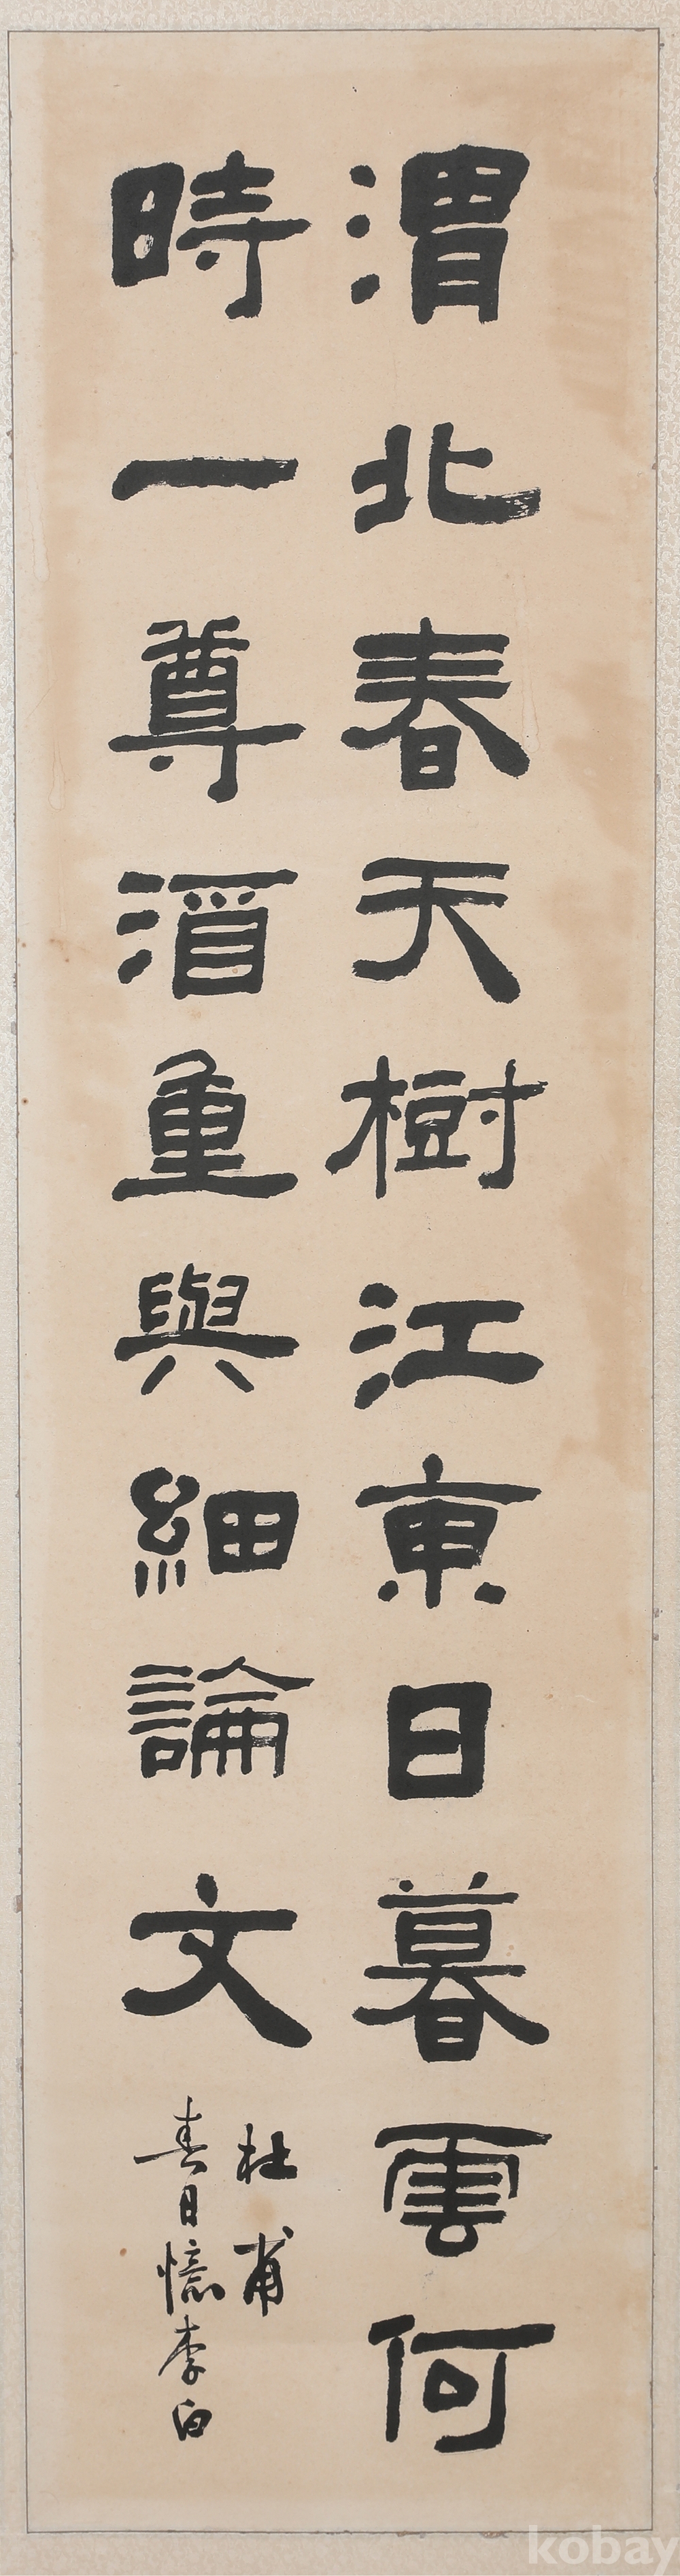 渭北春天樹江東日暮雲何
時一尊酒重與細論文
杜甫
春日憶李白
kobay